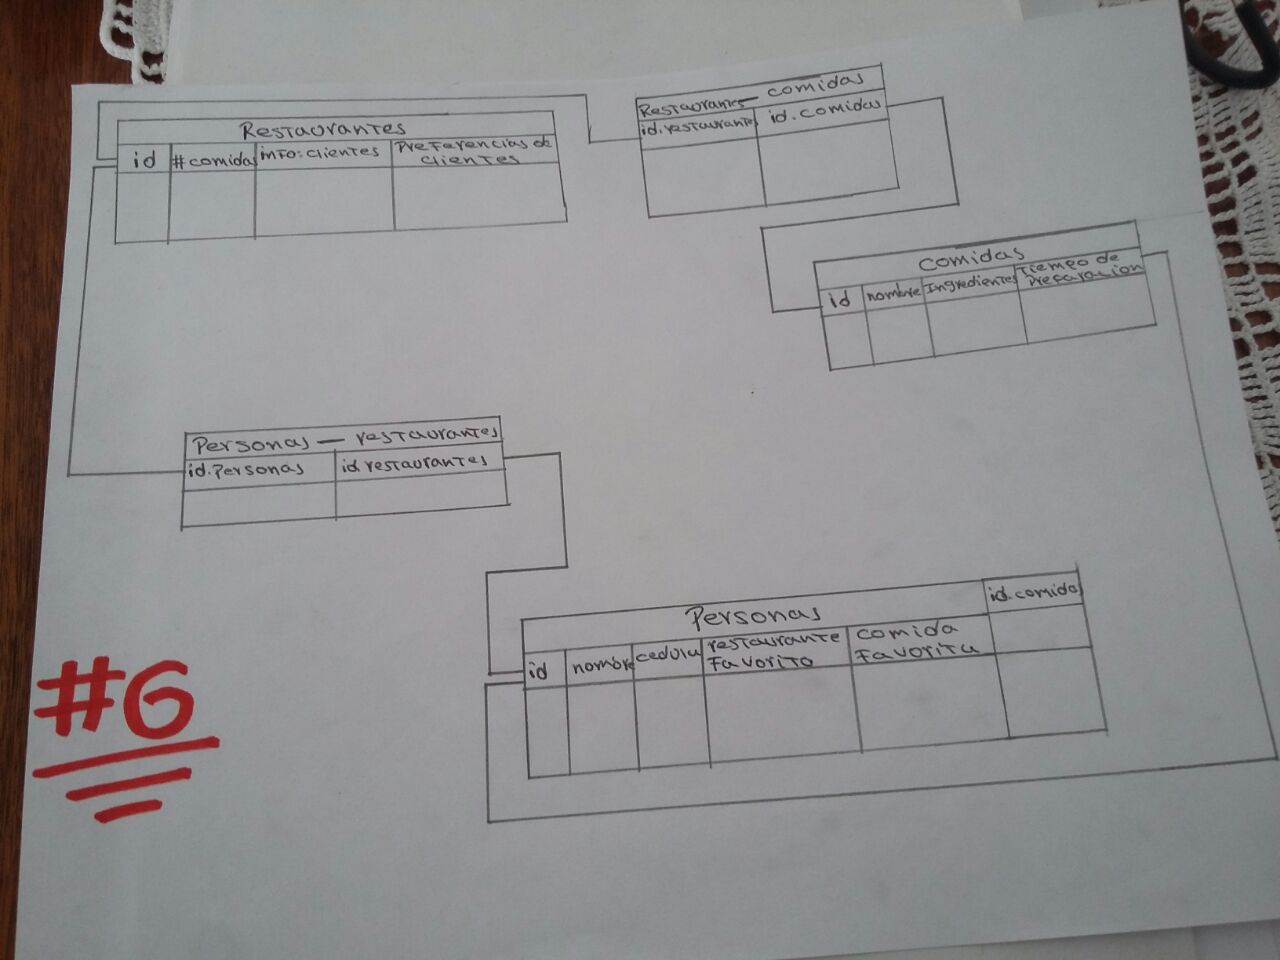 Restaurantes
id #comidas info:clientes Preferencias de clientes
Restaurantes — comidas
id.restaurante id.comidas
comidas
id nombre Ingredientes Tiempo de Preparacion
Personas — restaurantes
id.Personas id.restaurantes
Personas id.comida
id nombre cedula restaurante Favorito comida Favorita
#6